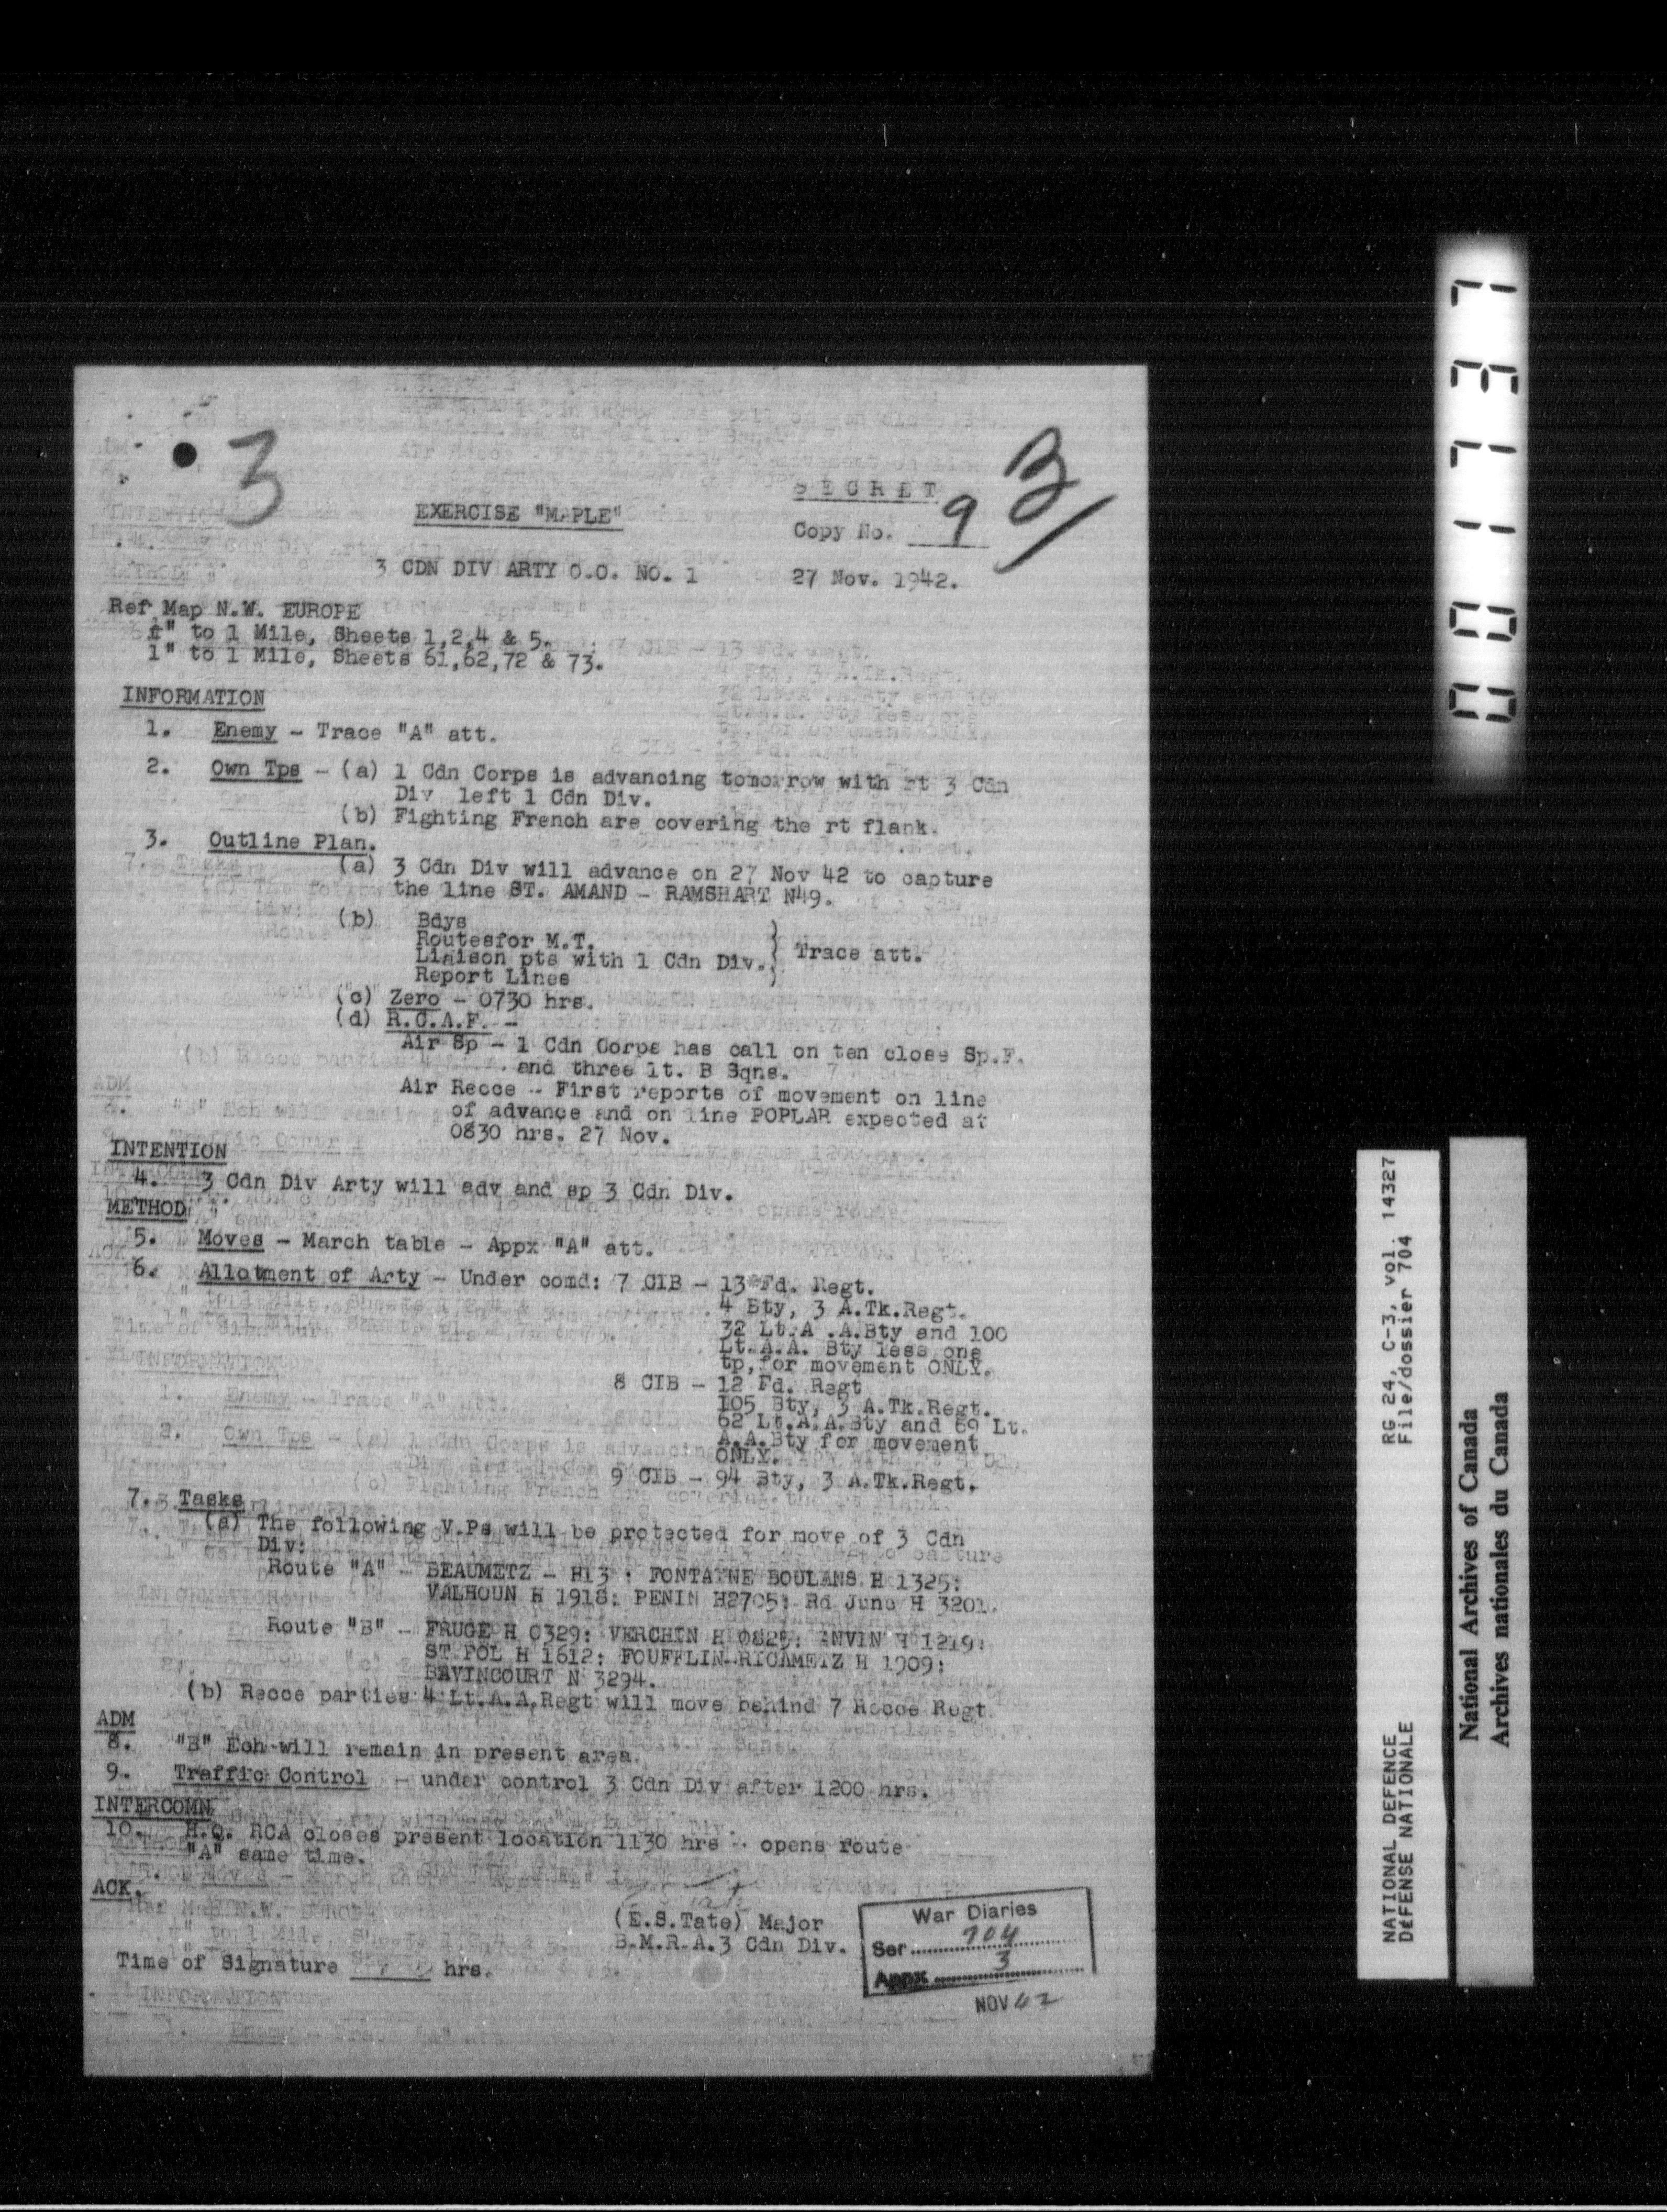 3
3
SECRET
EXERCISE "MAPLE"
Copy No. 9
3 CDN DIV ARTY O.O. NO. 1
27 Nov. 1942.
Ref Map N.W. EUROPE
¼" to 1 Mile, Sheets 1,2,4 & 5.
1" to 1 Mile, Sheets 61,62,72 & 73.
INFORMATION
1. Enemy - Trace "A" att.
2. Own Tps - (a) 1 Cdn Corps is advancing tomorrow with rt 3 Cdn
Div left 1 Cdn Div.
(b) Fighting French are covering the rt flank.
3. Outline Plan.
(a) 3 Cdn Div will advance on 27 Nov 42 to capture
the line ST. AMAND - RAMSHART N49.
(b) Bdys
Routesfor M.T.
Liaison pts with 1 Cdn Div. } Trace att.
Report Lines
(c) Zero - 0730 hrs.
(d) R.C.A.F. -
Air Sp - 1 Cdn Corps has call on ten close Sp.F.
and three lt. B Sqns.
Air Recce - First reports of movement on line
of advance and on line POPLAR expected at
0830 hrs. 27 Nov.
INTENTION
4. 3 Cdn Div Arty will adv and sp 3 Cdn Div.
METHOD
5. Moves - March table - Appx "A" att.
6. Allotment of Arty - Under comd: 7 CIB - 13 Fd. Regt.
4 Bty, 3 A.Tk.Regt.
32 Lt.A .A.Bty and 100
Lt.A.A. Bty less one
tp,for movement ONLY.
8 CIB - 12 Fd. Regt
105 Bty, 3 A.Tk.Regt.
62 Lt.A.A.Bty and 69 Lt.
A.A.Bty for movement
ONLY.
9 CIB - 94 Bty, 3 A.Tk.Regt.
7. Tasks
(a) The following V.Ps will be protected for move of 3 Cdn
Div:
Route "A" - BEAUMETZ - H13 : FONTAINE BOULANS H 1325:
VALHOUN H 1918: PENIN H2705: Rd Junc H 3201.
Route "B" - FRUGE H 0329: VERCHIN H 0825: ANVIN H 1219:
ST.POL H 1612: FOUFFLIN-RICAMETZ H 1909:
BAVINCOURT N 3294.
(b) Recce parties 4 Lt.A.A.Regt will move behind 7 Recce Regt.
ADM
8. "B" Ech will remain in present area.
9. Traffic Control - under control 3 Cdn Div after 1200 hrs.
INTERCOMN
10. H.Q. RCA closes present location 1130 hrs - opens route
"A" same time.
ACK.
(E.S.Tate) Major
B.M.R.A.3 Cdn Div.
Time of Signature hrs.
War Diaries
Ser 704
Appx 3
NOV 42
001737
RG 24, C-3, vol. 14327
File/dossier 704
NATIONAL DEFENCE
DÉFENSE NATIONALE
National Archives of Canada
Archives nationales du Canada